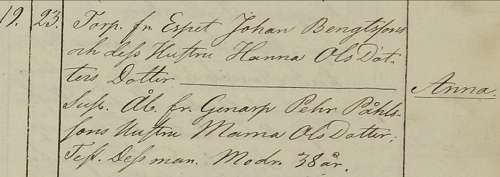 19. 23. Torp. fr Espet Johan Bengtssons
och dess Hustru Hanna Ols Dot-
ters Dotter
Anna.
Susc. Åb. fr. Genarp Pehr Påhls-
sons Hustru Marna Ols Dotter;
Test. Dess man. Modr. 38 år.